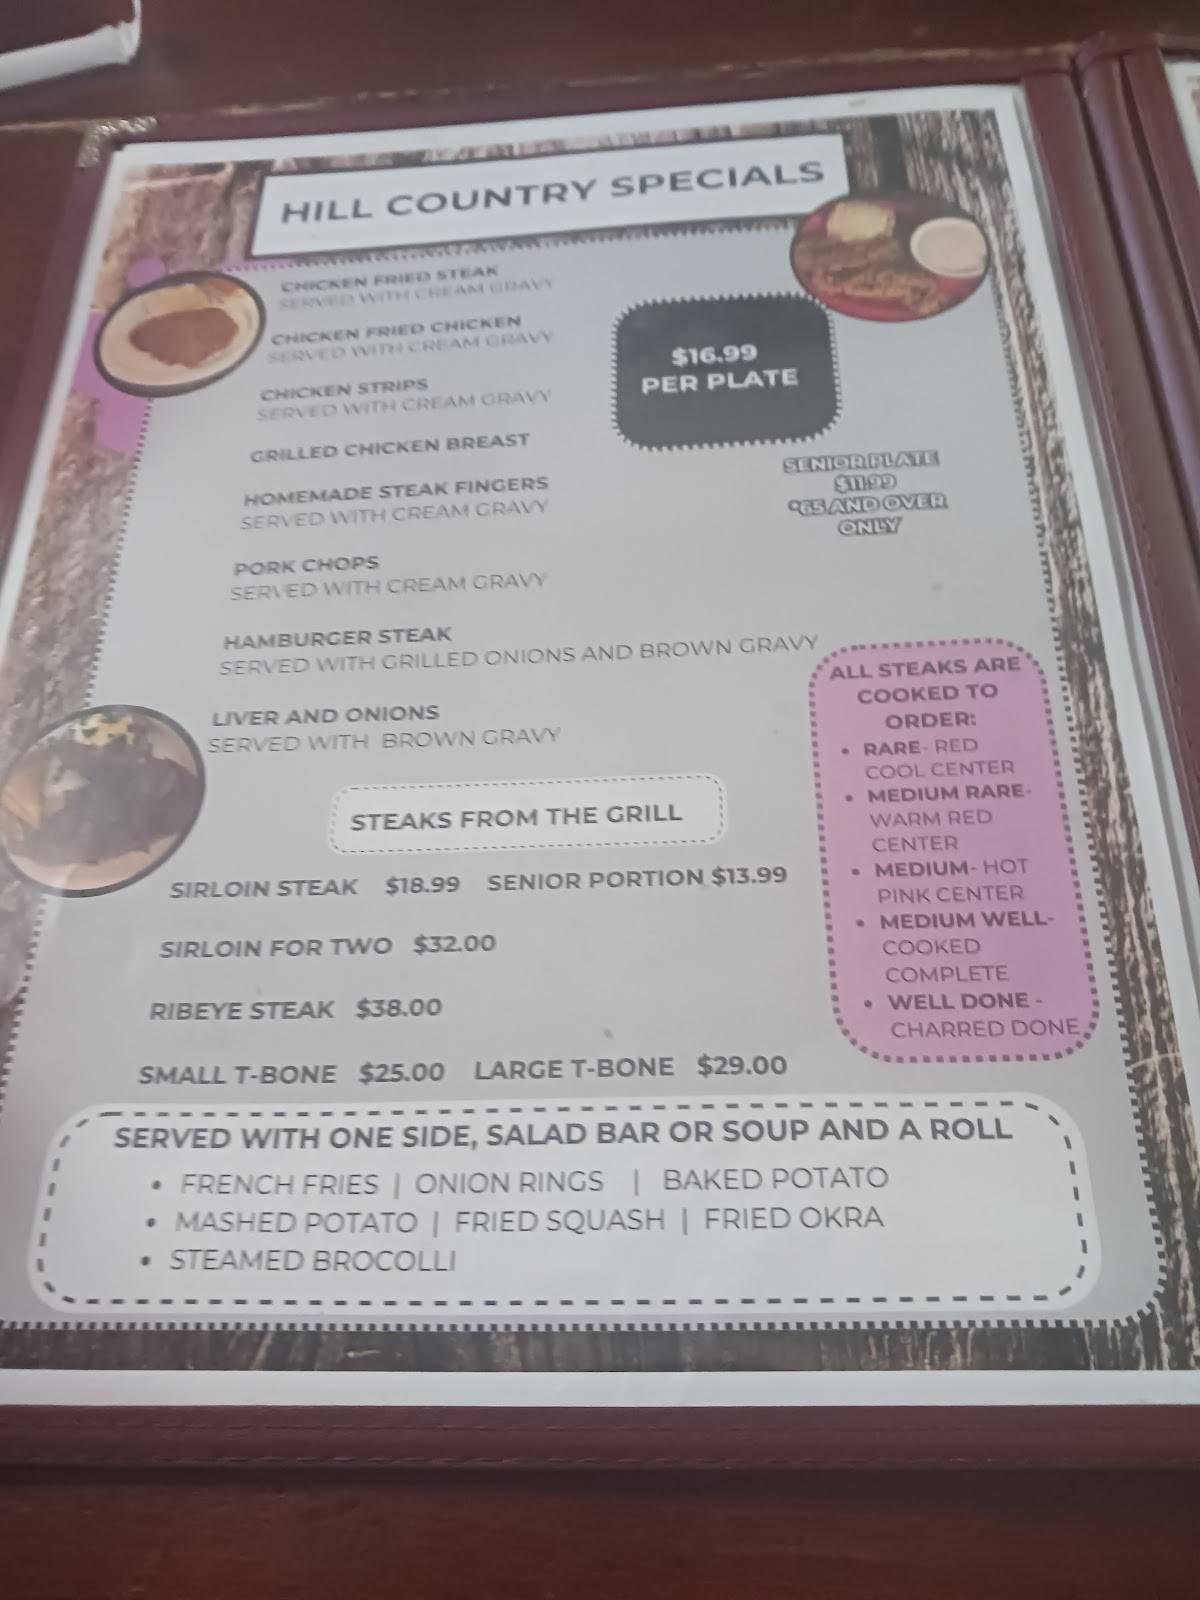 HILL COUNTRY SPECIALS
CHICKEN FRIED STEAK
SERVED WITH CREAM GRAVY
CHICKEN FRIED CHICKEN
SERVED WITH CREAM GRAVY
CHICKEN STRIPS
SERVED WITH CREAM GRAVY
GRILLED CHICKEN BREAST
HOMEMADE STEAK FINGERS
SERVED WITH CREAM GRAVY
PORK CHOPS
SERVED WITH CREAM GRAVY
HAMBURGER STEAK
SERVED WITH GRILLED ONIONS AND BROWN GRAVY
LIVER AND ONIONS
SERVED WITH BROWN GRAVY
$16.99
PER PLATE
SENIOR PLATE
$11.99
*65 AND OVER
ONLY
ALL STEAKS ARE
COOKED TO
ORDER:
• RARE- RED
COOL CENTER
• MEDIUM RARE-
WARM RED
CENTER
• MEDIUM- HOT
PINK CENTER
• MEDIUM WELL-
COOKED
COMPLETE
• WELL DONE -
CHARRED DONE
STEAKS FROM THE GRILL
SIRLOIN STEAK $18.99 SENIOR PORTION $13.99
SIRLOIN FOR TWO $32.00
RIBEYE STEAK $38.00
SMALL T-BONE $25.00 LARGE T-BONE $29.00
SERVED WITH ONE SIDE, SALAD BAR OR SOUP AND A ROLL
• FRENCH FRIES | ONION RINGS | BAKED POTATO
• MASHED POTATO | FRIED SQUASH | FRIED OKRA
• STEAMED BROCOLLI